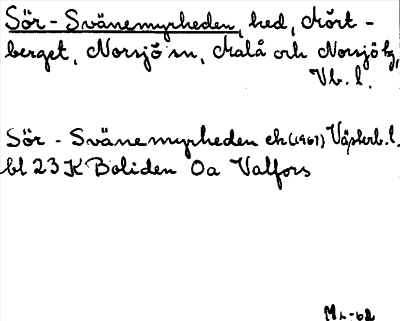 Sör-Svänemyrheden, hed, Mört-
berget, Norsjö sn, Malå och Norsjö tg,
Vb. l.
Sör-Svänemyrheden ek (1961) Västerb. l.
bl 23 K Boliden 0a Valfors